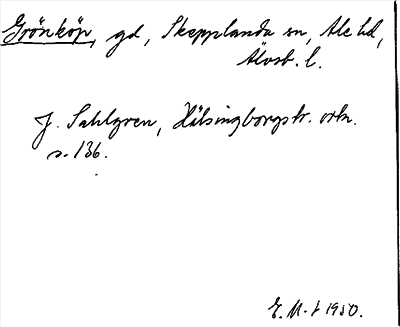 Grönköp, gd, Skepplanda sn, Ale hd,
Älvsb. l.
J. Sahlgren, Hälsingborgstr. ortn.
s. 136.
E. M-t 1950.